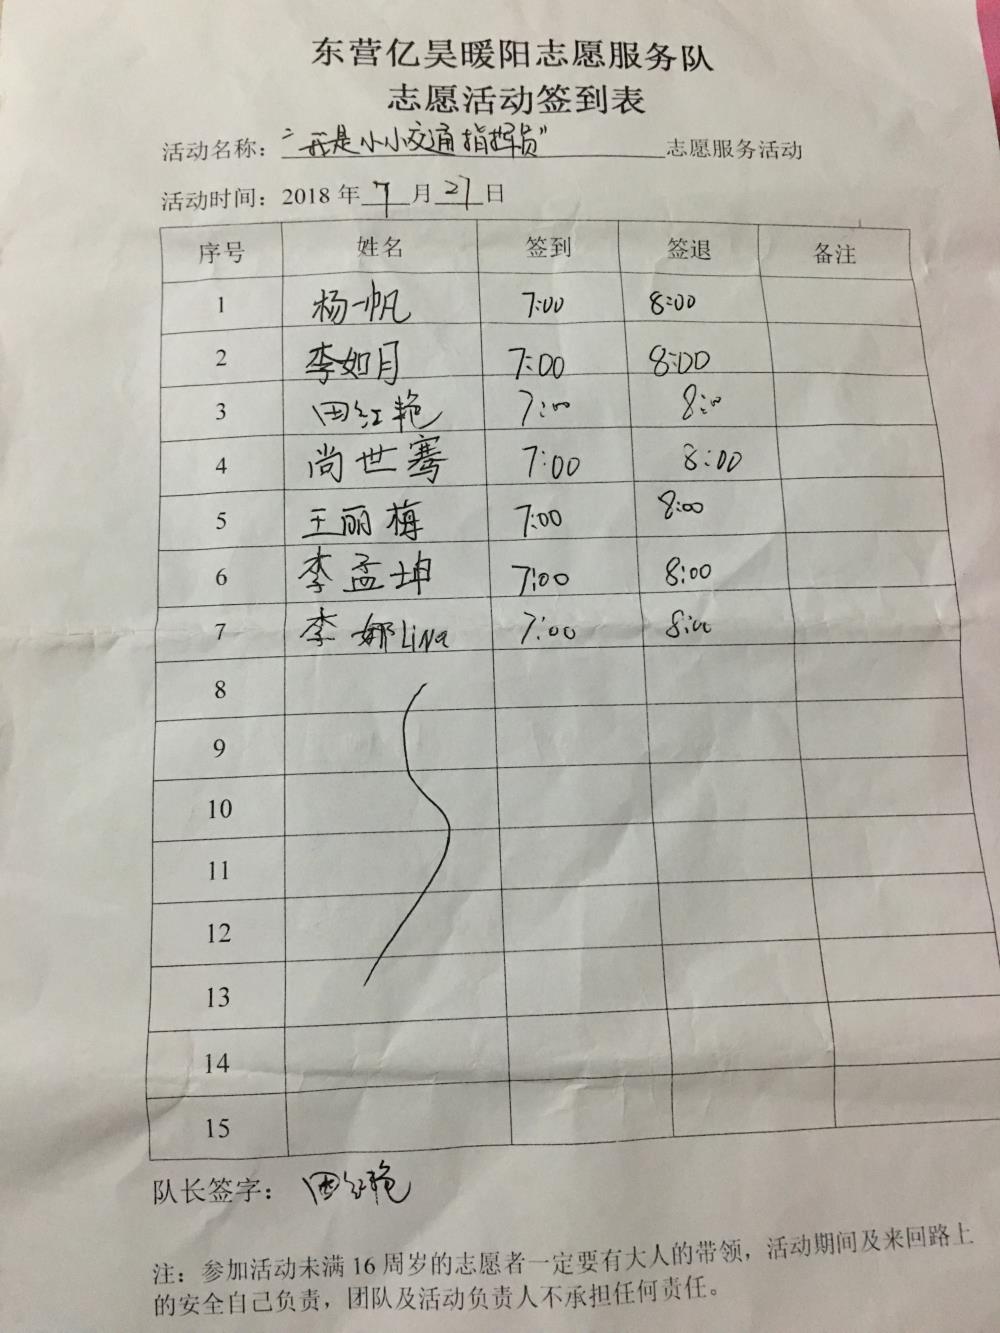 东营亿昊暖阳志愿服务队
志愿活动签到表
活动名称："我是小小交通指挥员"志愿服务活动
活动时间：2018年7月27日
序号 姓名 签到 签退 备注
1 杨一帆 7:00 8:00
2 李如月 7:00 8:00
3 田红艳 7:00 8:00
4 尚世骞 7:00 8:00
5 王丽梅 7:00 8:00
6 李孟坤 7:00 8:00
7 李娜Lina 7:00 8:00
8
9
10
11
12
13
14
15
队长签字：田红艳
注：参加活动未满16周岁的志愿者一定要有大人的带领，活动期间及来回路上
的安全自己负责，团队及活动负责人不承担任何责任。